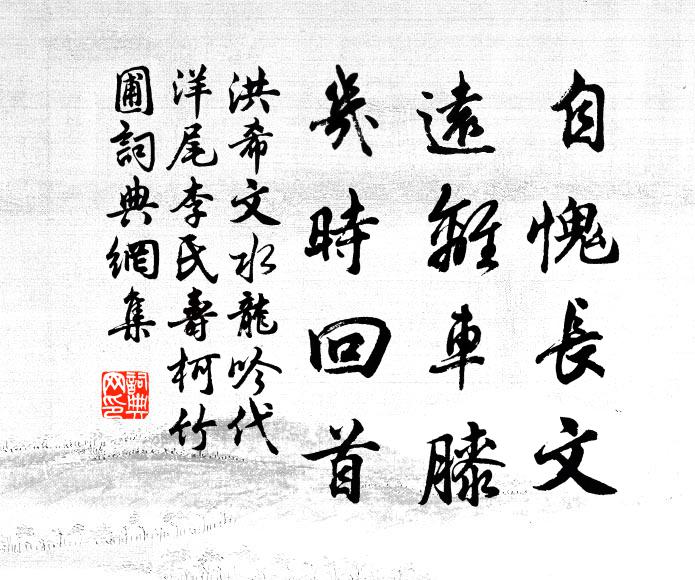 自愧長文
遠離車膝
幾時回首
洪希文水龍吟代
洋尾李氏壽柯竹
圃詞典網集
詞典
网印